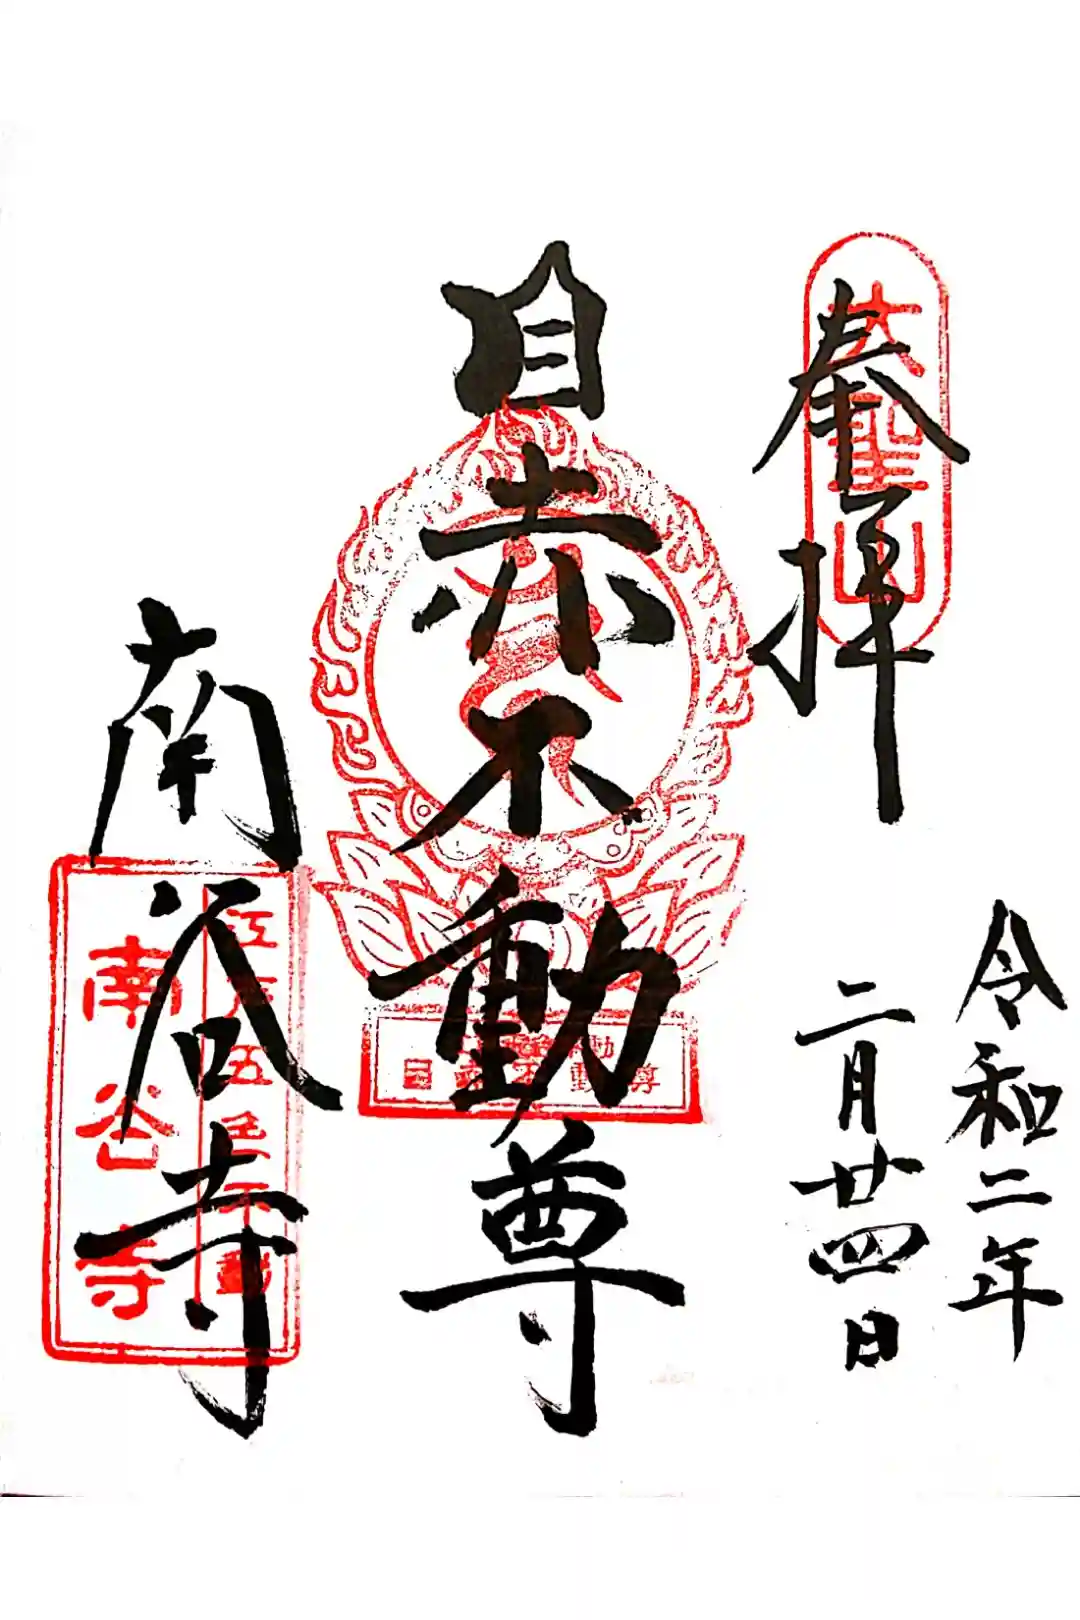 奉拝
大聖山
令和二年
二月廿四日
目赤不動尊
南谷寺
江戸五色不動
南谷寺